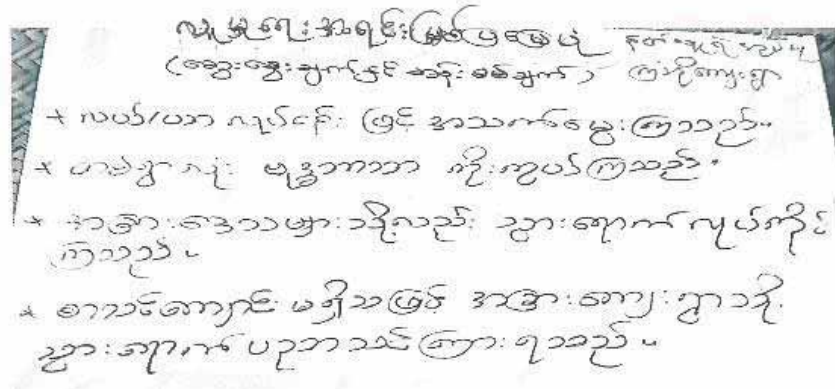 လူမှုရေးအရင်းမြစ်ပြမြေပုံ
(ဆွေးနွေးချက်နှင့် ဆန်းစစ်ချက်) ကြံဘိုကျေးရွာ
+ လယ်/ယာ လုပ်ငန်း ဖြင့် အသက်မွေးကြသည်။
* တစ်ရွာလုံး ဗုဒ္ဓဘာသာ ကိုးကွယ်ကြသည်။
* အခြားဒေသများသို့လည်း သွားရောက်လုပ်ကိုင်
ကြသည်။
* စာသင်ကျောင်း မရှိသဖြင့် အခြားကျေးရွာသို့
သွားရောက်ပညာသင်ကြားရသည်။